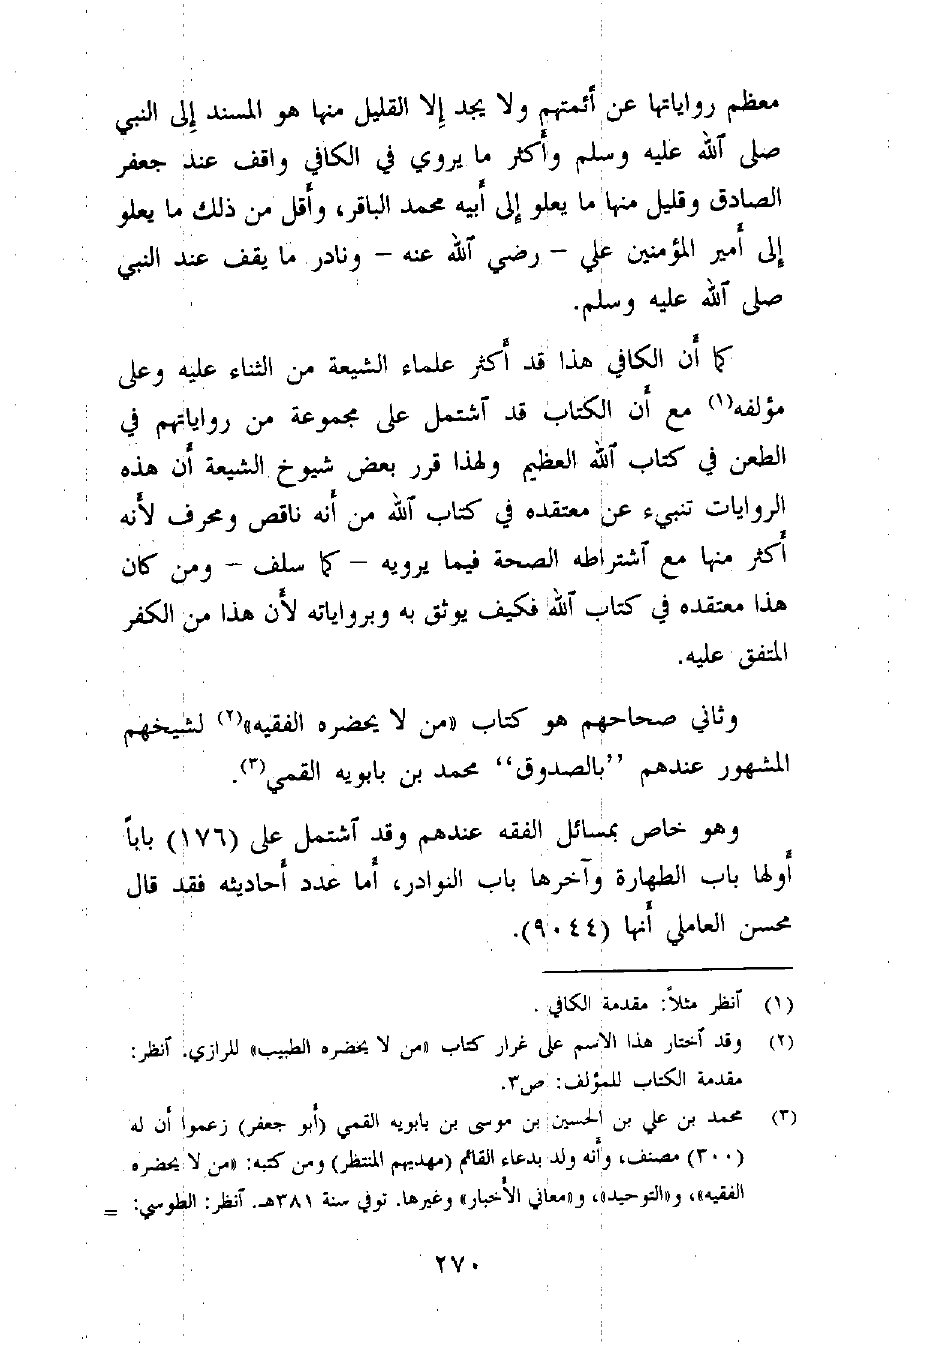 معظم رواياتها عن أئمتهم ولا يجد إلا القليل منها هو المسند إلى النبي
صلى ٱلله عليه وسلم وأكثر ما يروي في الكافي واقف عند جعفر
الصادق وقليل منها ما يعلو إلى أبيه محمد الباقر، وأقل من ذلك ما يعلو
إلى أمير المؤمنين علي – رضي ٱلله عنه – ونادر ما يقف عند النبي
صلى ٱلله عليه وسلم.
كما أن الكافي هذا قد أكثر علماء الشيعة من الثناء عليه وعلى
مؤلفه(١) مع أن الكتاب قد ٱشتمل على مجموعة من رواياتهم في
الطعن في كتاب ٱلله العظيم ولهذا قرر بعض شيوخ الشيعة أن هذه
الروايات تنبيء عن معتقده في كتاب ٱلله من أنه ناقص ومحرف لأنه
أكثر منها مع ٱشتراطه الصحة فيما يرويه – كما سلف – ومن كان
هذا معتقده في كتاب ٱلله فكيف يوثق به وبرواياته لأن هذا من الكفر
المتفق عليه.
وثاني صحاحهم هو كتاب «من لا يحضره الفقيه»(٢) لشيخهم
المشهور عندهم ’’بالصدوق‘‘ محمد بن بابويه القمي(٣).
وهو خاص بمسائل الفقه عندهم وقد ٱشتمل على (١٧٦) باباً
أولها باب الطهارة وآخرها باب النوادر، أما عدد أحاديثه فقد قال
محسن العاملي أنها (٩٠٤٤).
(١) ٱنظر مثلاً: مقدمة الكافي .
(٢) وقد ٱختار هذا الاسم على غرار كتاب «من لا يحضره الطبيب» للرازي. ٱنظر:
مقدمة الكتاب للمؤلف: ص٣.
(٣) محمد بن علي بن الحسين بن موسى بن بابويه القمي (أبو جعفر) زعموا أن له
(٣٠٠) مصنف، وأنه ولد بدعاء القائم (مهديهم المنتظر) ومن كتبه: «من لا يحضره
الفقيه»، و«التوحيد»، و«معاني الأخبار» وغيرها. توفي سنة ٣٨١هـ. ٱنظر: الطوسي: =
٢٧٠